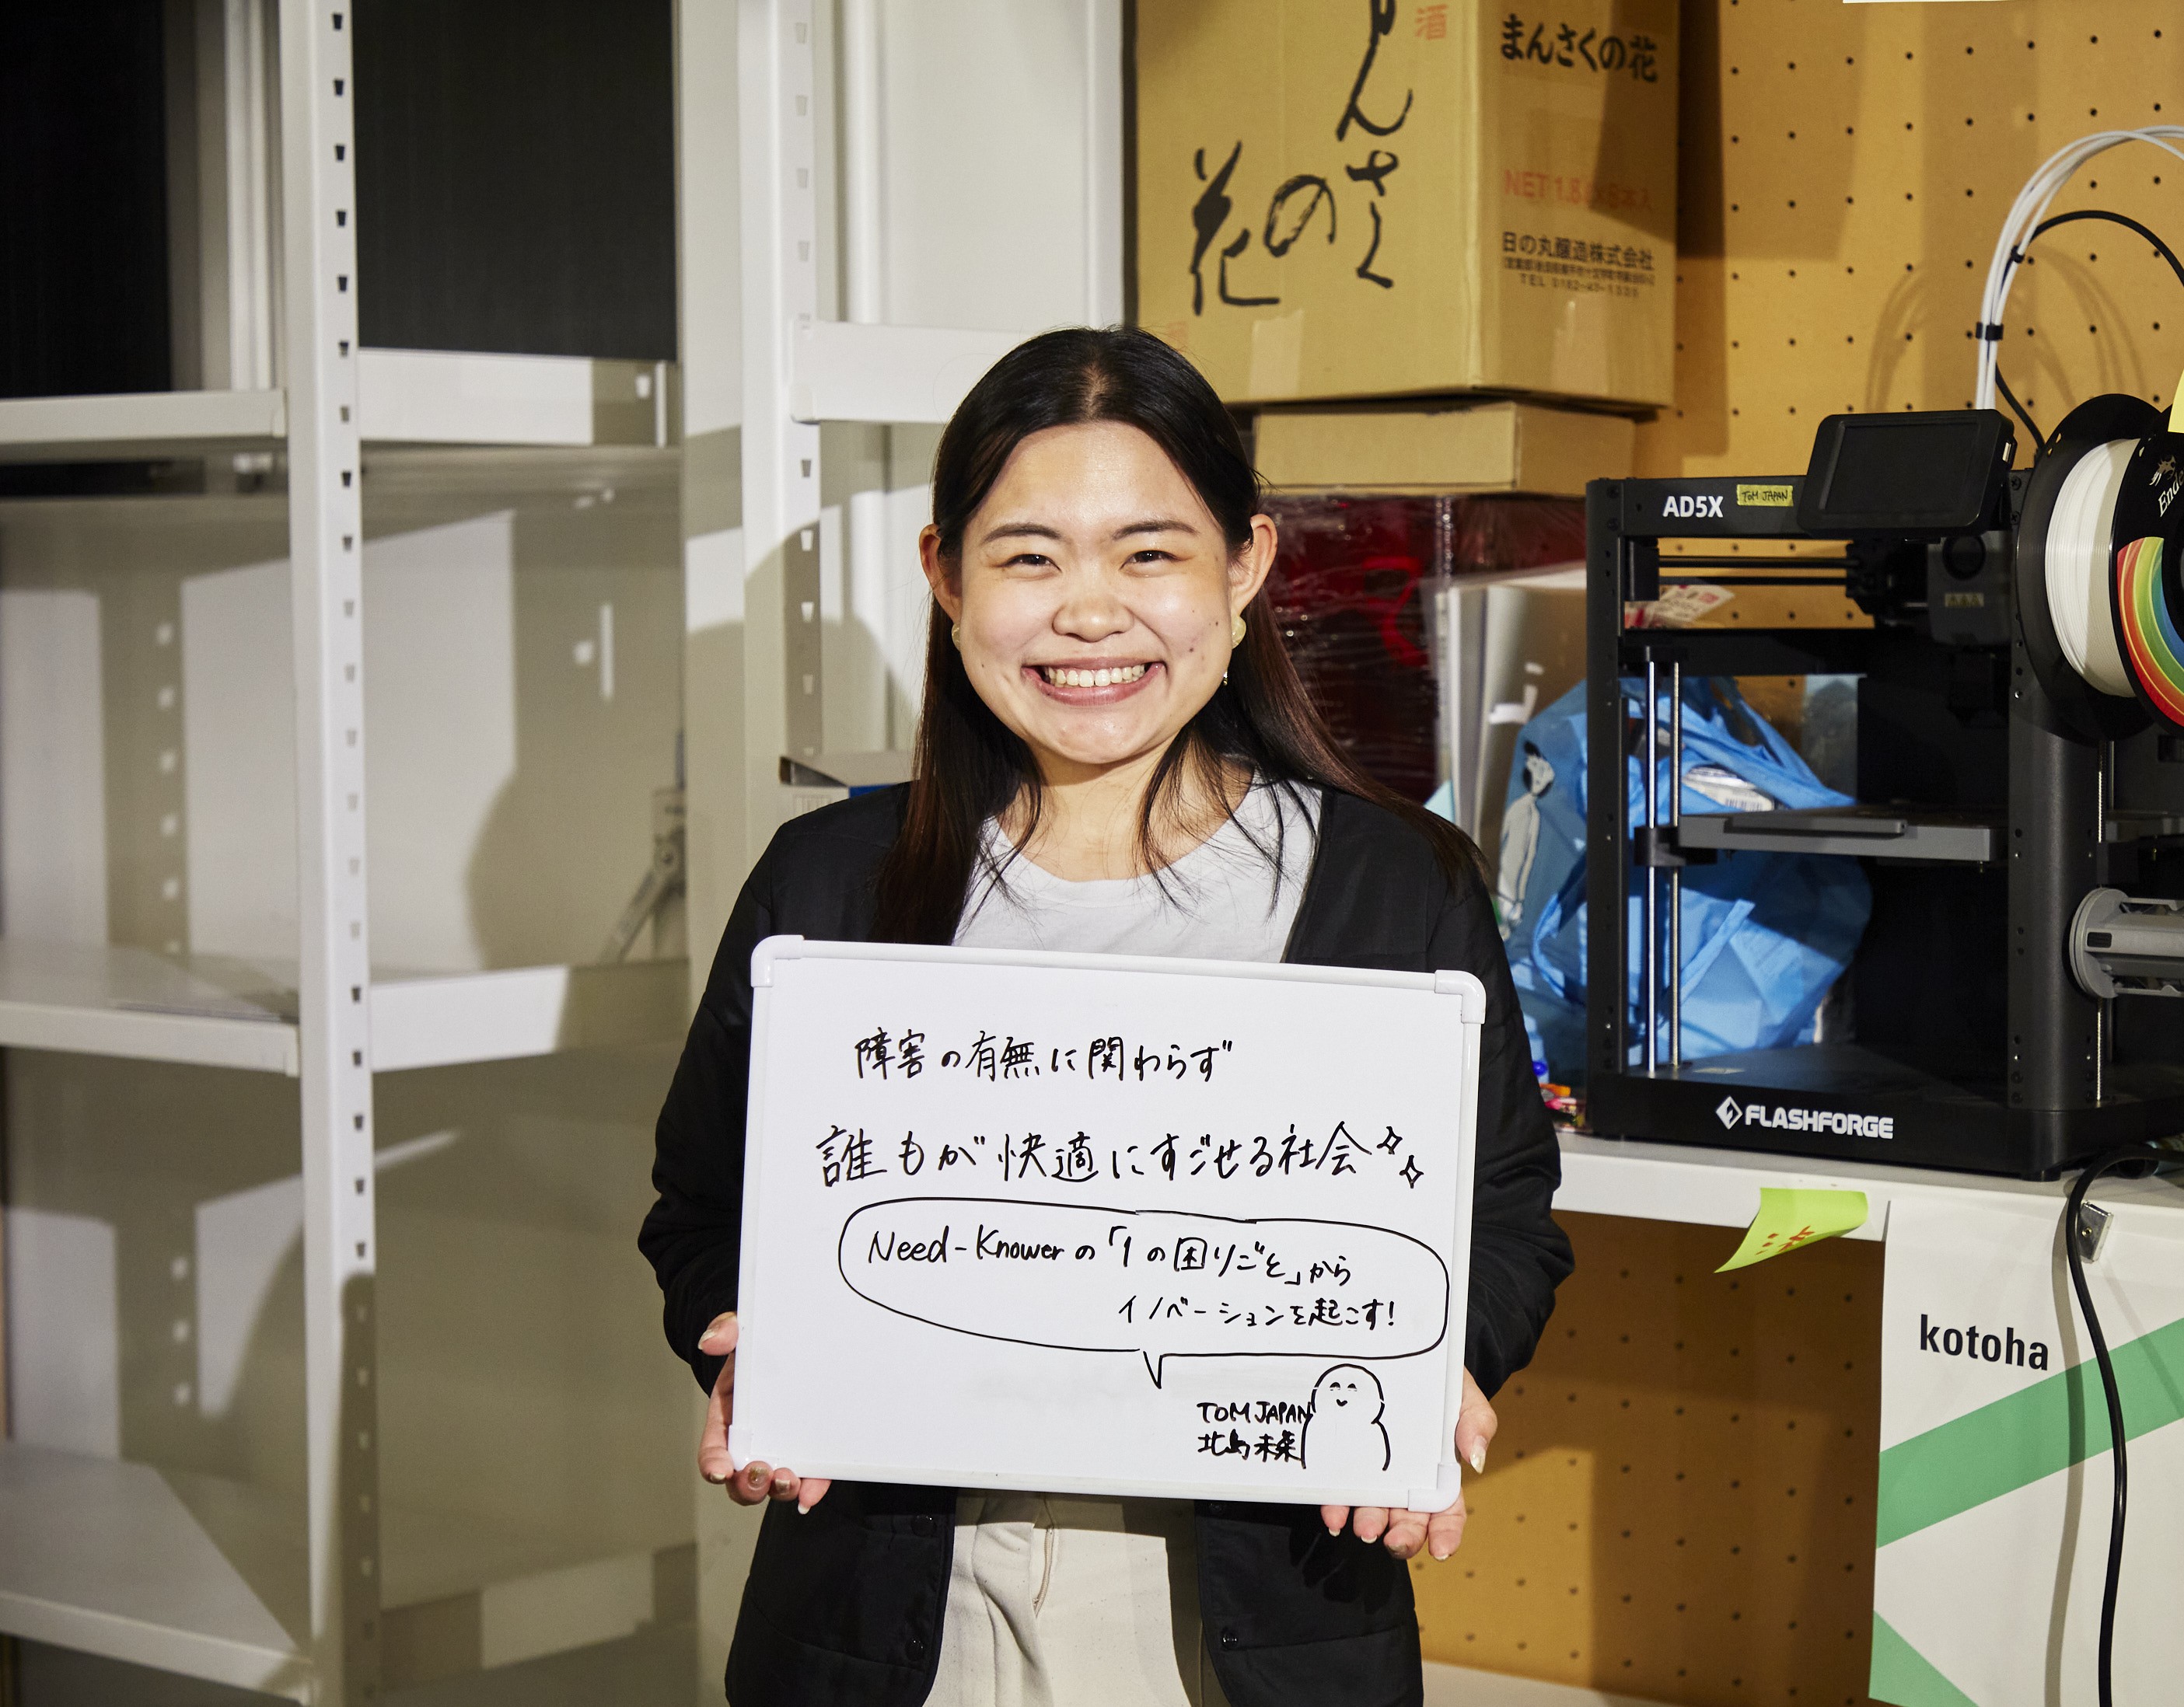 まんさくの花
酒
まんさくの花
日の丸醸造株式会社
AD5X
TOM JAPAN
FLASHFORGE
障害の有無に関わらず
誰もが快適にすごせる社会
Need-Knowerの「1の困りごと」から
イノベーションを起こす!
TOM JAPAN
北島未
kotoha